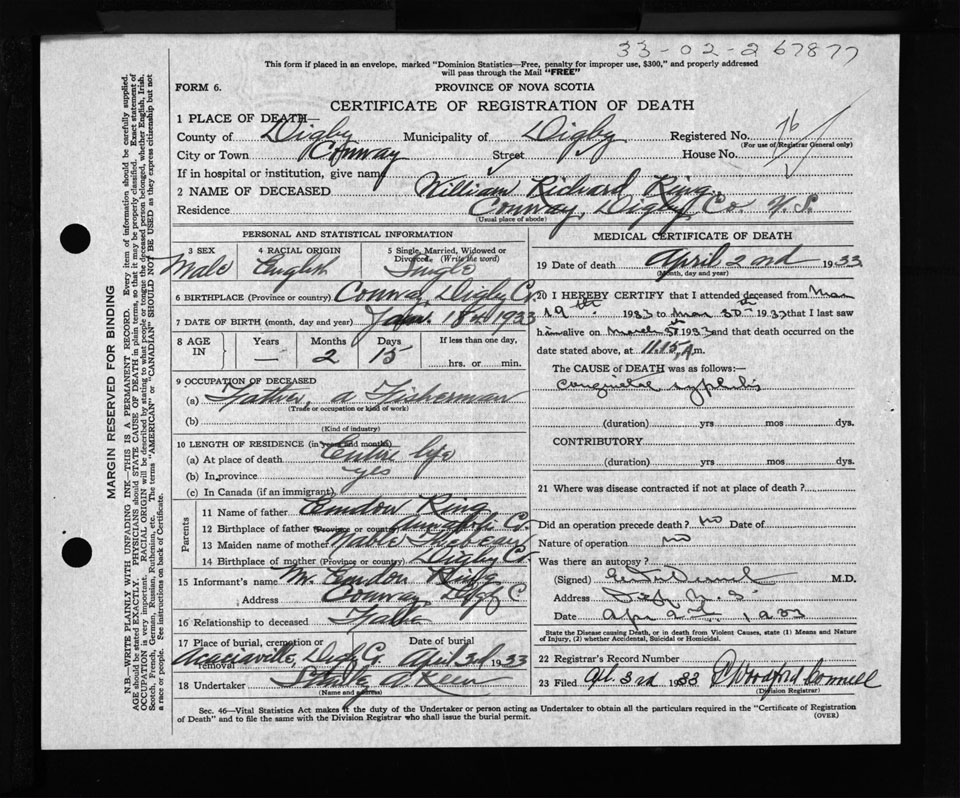 33-02-267877
This form if placed in an envelope, marked "Dominion Statistics—Free, penalty for improper use, $300," and properly addressed
will pass through the Mail "FREE"
FORM 6.
PROVINCE OF NOVA SCOTIA
CERTIFICATE OF REGISTRATION OF DEATH
1 PLACE OF DEATH—
County of Digby Municipality of Digby Registered No. 76
(For use of Registrar General only)
City or Town Conway Street House No.
If in hospital or institution, give name
2 NAME OF DECEASED William Richard Ring
Residence Conway, Digby Co. N.S.
(Usual place of abode)
PERSONAL AND STATISTICAL INFORMATION
3 SEX 4 RACIAL ORIGIN 5 Single, Married, Widowed or Divorced. (Write the word)
Male English Single
6 BIRTHPLACE (Province or country) Conway, Digby Co.
7 DATE OF BIRTH (month, day and year) Jan. 18th 1933
8 AGE IN Years Months Days If less than one day,
— 2 15 hrs. or min.
9 OCCUPATION OF DECEASED
(a) Father, a Fisherman
(Trade or occupation or kind of work)
(b)
(Kind of industry)
10 LENGTH OF RESIDENCE (in years and months)
(a) At place of death Entire life
(b) In province yes
(c) In Canada (if an immigrant)
Parents
11 Name of father Ring
12 Birthplace of father (Province or country) Co.
13 Maiden name of mother Mable
14 Birthplace of mother (Province or country) Digby Co.
15 Informant's name Mr.
Address Conway, Digby C
16 Relationship to deceased Father
17 Place of burial, cremation or removal Date of burial
Acaciaville, Digby Co. April 3d 1933
18 Undertaker
(Name and address)
MEDICAL CERTIFICATE OF DEATH
19 Date of death April 2nd 1933
(Month, day and year)
20 I HEREBY CERTIFY that I attended deceased from Mar
19th 1933 to Mar 30th 1933 that I last saw
him alive on March 1933 and that death occurred on
date stated above, at 11.15 A.m.
The CAUSE of DEATH was as follows:—
syphilis
(duration) yrs mos dys.
CONTRIBUTORY
(duration) yrs mos dys.
21 Where was disease contracted if not at place of death?
Did an operation precede death? no Date of
Nature of operation no
Was there an autopsy?
(Signed) M.D.
Address N.S.
Date Apr 2nd 1933
State the Disease causing Death, or in death from Violent Causes, state (1) Means and Nature
of Injury, (2) whether Accidental, Suicidal or Homicidal.
22 Registrar's Record Number
23 Filed Apl. 3rd 1933
(Division Registrar)
Sec. 46—Vital Statistics Act makes it the duty of the Undertaker or person acting as Undertaker to obtain all the particulars required in the "Certificate of Registration
of Death" and to file the same with the Division Registrar who shall issue the burial permit.
(OVER)
MARGIN RESERVED FOR BINDING
N.B.—WRITE PLAINLY WITH UNFADING INK—THIS IS A PERMANENT RECORD. Every item of information should be carefully supplied.
AGE should be stated EXACTLY. PHYSICIANS should STATE CAUSE OF DEATH in plain terms, so that it may be properly classified. Exact statement of
OCCUPATION is very important. RACIAL ORIGIN will be described by stating to what people or tongue the deceased person belonged, whether English, Irish,
Scotch, French, German, Russian, Ruthenian, etc. The terms "AMERICAN" or "CANADIAN" SHOULD NOT BE USED as they express citizenship but not
a race or people. See instructions on back of Certificate.